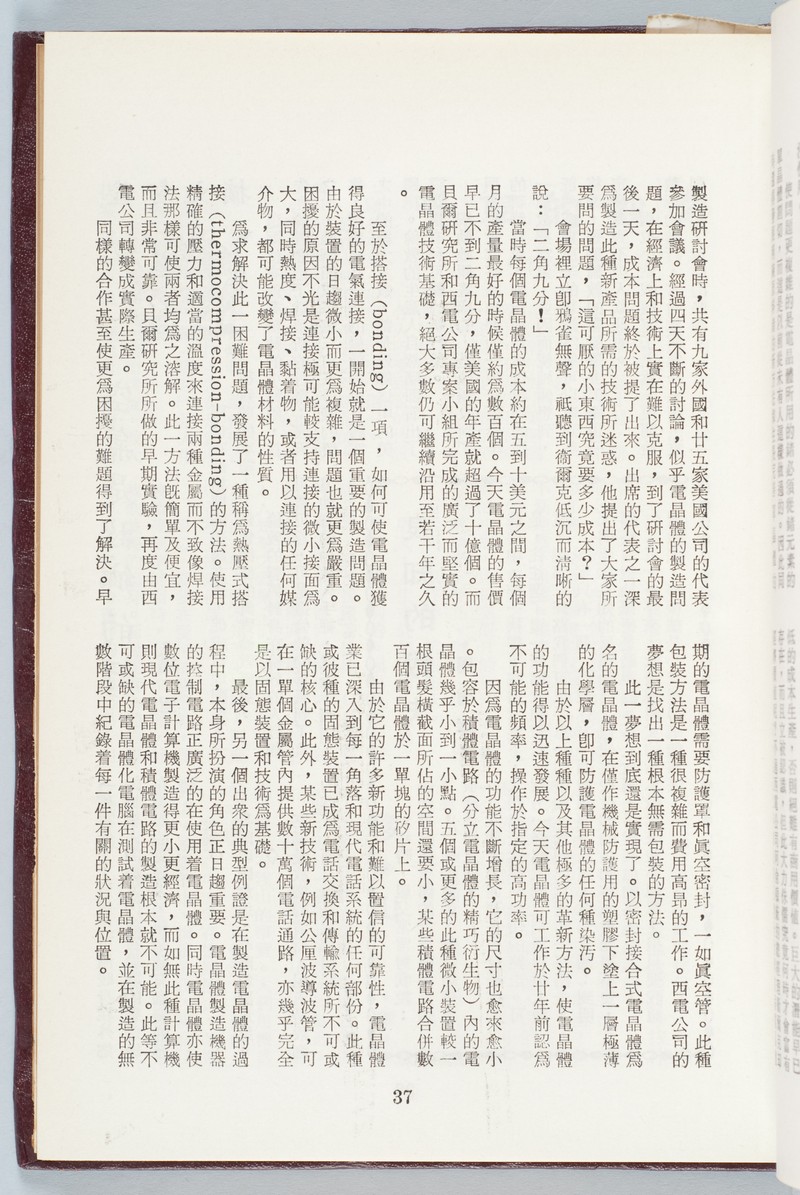 製造研討會時，共有九家外國和廿五家美國公司的代表
參加會議。經過四天不斷的討論，似乎電晶體的製造問
題，在經濟上和技術上實在難以克服，到了研討會的最
後一天，成本問題終於被提了出來。出席的代表之一深
爲製造此種新產品所需的技術所迷惑，他提出了大家所
要問的問題，「這可厭的小東西究竟要多少成本？」
會場裡立卽鴉雀無聲，祗聽到衞爾克低沉而清晰的
說：「二角九分！」
當時每個電晶體的成本約在五到十美元之間，每個
月的產量最好的時候僅約爲數百個。今天電晶體的售價
早已不到二角九分，僅美國的年產就超過了十億個。而
貝爾研究所和西電公司專案小組所完成的廣泛而堅實的
電晶體技術基礎，絕大多數仍可繼續沿用至若干年之久
。
至於搭接（bonding）一項，如何可使電晶體獲
得良好的電氣連接，一開始就是一個重要的製造問題。
由於裝置的日趨微小而更爲複雜，問題也就更爲嚴重。
困擾的原因不光是連接極可能較支持連接的微小接面爲
大，同時熱度、焊接、黏着物，或者用以連接的任何媒
介物，都可能改變了電晶體材料的性質。
爲求解決此一困難問題，發展了一種稱爲熱壓式搭
接（thermocompression-bonding）的方法。使用
精確的壓力和適當的溫度來連接兩種金屬而不致像焊接
法那樣可使兩者均爲之溶解。此一方法旣簡單及便宜，
而且非常可靠。貝爾研究所所做的早期實驗，再度由西
電公司轉變成實際生產。
同樣的合作甚至使更爲困擾的難題得到了解決。早
期的電晶體需要防護罩和眞空密封，一如眞空管。此種
包裝方法是一種很複雜而費用高昂的工作。西電公司的
夢想是找出一種根本無需包裝的方法。
此一夢想到底還是實現了。以密封接合式電晶體爲
名的電晶體，在僅作機械防護用的塑膠下塗上一層極薄
的化學層，卽可防護電晶體的任何種染汚。
由於以上種種以及其他極多的革新方法，使電晶體
的功能得以迅速發展。今天電晶體可工作於廿年前認爲
不可能的頻率，操作於指定的高功率。
因爲電晶體的功能不斷增長，它的尺寸也愈來愈小
。包容於積體電路（分立電晶體的精巧衍生物）內的電
晶體幾乎小到一小點。五個或更多的此種微小裝置較一
根頭髮橫截面所佔的空間還要小，某些積體電路合併數
百個電晶體於一單塊的矽片上。
由於它的許多新功能和難以置信的可靠性，電晶體
業已深入到每一角落和現代電話系統的任何部份。此種
或彼種的固態裝置已成爲電話交換和傳輸系統所不可或
缺的核心。此外，某些新技術，例如公厘波導波管，可
在一單個金屬管內提供數十萬個電話通路，亦幾乎完全
是以固態裝置和技術爲基礎。
最後，另一個出衆的典型例證是在製造電晶體的過
程中，本身所扮演的角色正日趨重要。電晶體製造機器
的控制電路正廣泛的在使用着電晶體。同時電晶體亦使
數位電子計算機製造得更小更經濟，而如無此種計算機
則現代電晶體和積體電路的製造根本就不可能。此等不
可或缺的電晶體化電腦在測試着電晶體，並在製造的無
數階段中紀錄着每一件有關的狀況與位置。
37